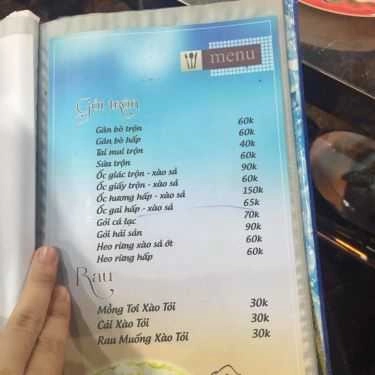 menu
Gỏi trộn
Gân bò trộn 60k
Gân bò hấp 60k
Tai mui trộn 40k
Sứa trộn 60k
Ốc giác trộn - xào sả 90k
Ốc giấy trộn - xào sả 60k
Ốc hương hấp - xào sả 150k
Ốc gai hấp - xào sả 65k
Gỏi cá lạc 70k
Gỏi hải sản 90k
Heo rừng xào sả ớt 60k
Heo rừng hấp 60k
Rau
Mồng Tơi Xào Tỏi 30k
Cải Xào Tỏi 30k
Rau Muống Xào Tỏi 30k